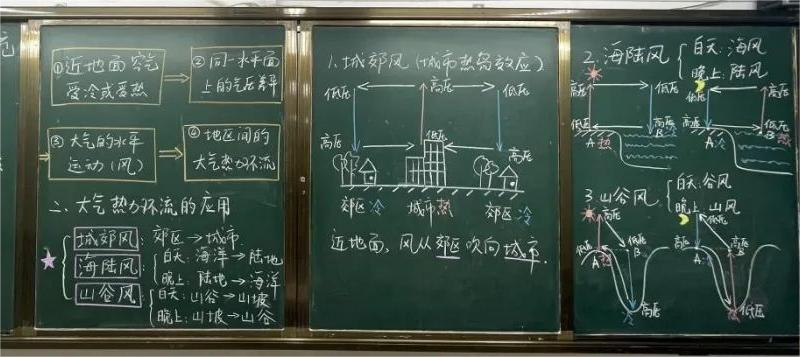 ①近地面空气
受冷或受热
②同一水平面
上的气压差异
③大气的水平
运动(风)
④地区间的
大气热力环流
二、大气热力环流的应用
城郊风：郊区→城市.
海陆风
白天：海洋→陆地
晚上：陆地→海洋
山谷风：
白天：山谷→山坡
晚上：山坡→山谷
1.城郊风(城市热岛效应)
低压 高压 低压
高压 低压 高压
郊区 冷 城市 热 郊区 冷
近地面，风从郊区吹向城市.
2.海陆风
白天：海风
晚上：陆风
高压 低压
低压 高压
A 热 B 冷
低压 高压
高压 低压
A 冷 B 热
3.山谷风
白天：谷风
晚上：山风
高压
低压
低压
A B
冷 高压
低压
高压
高压
A B
热 低压